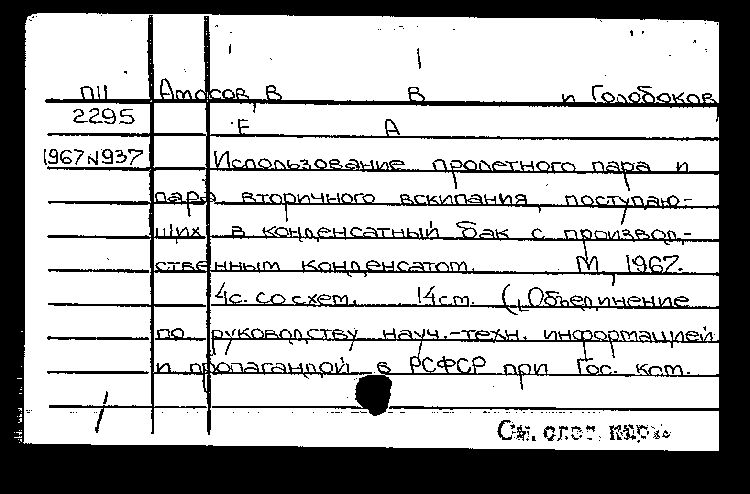 П11 Амосов, В В и Голобоков,
2295 Е А
1967 N937 Использование пролетного пара и
пара вторичного вскипания, поступаю-
щих в конденсатный бак с производ-
ственным конденсатом. М, 1967.
4с. со схем. 14см. (Объединение
по руководству науч.-техн. информацией
и пропагандой в РСФСР при Гос. ком.
См. след. карт.